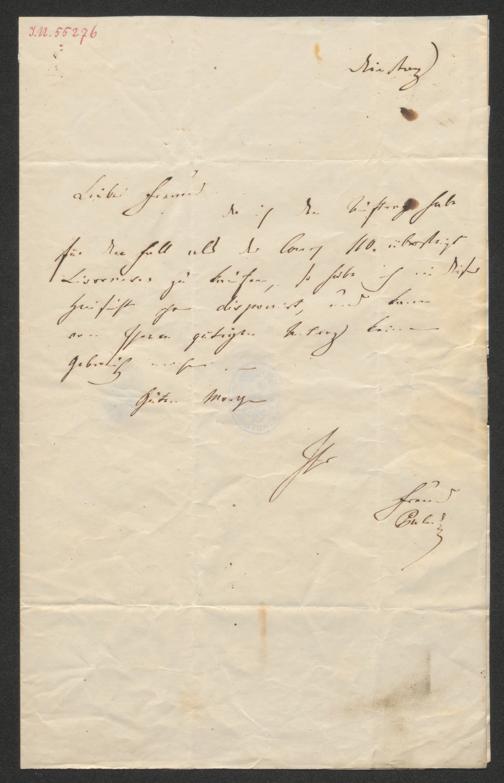 J.N. 55276
Dienstag
Lieber Freund
da ich den Auftrag habe
für den Fall als der Cours 110. übersteigt
Livorneser zu kaufen, so habe ich in dieser
Hinsicht schon disponirt, und kann
von Ihrem gütigen Antrag keinen
Gebrauch machen
Guten Morgen
Ihr
Freund